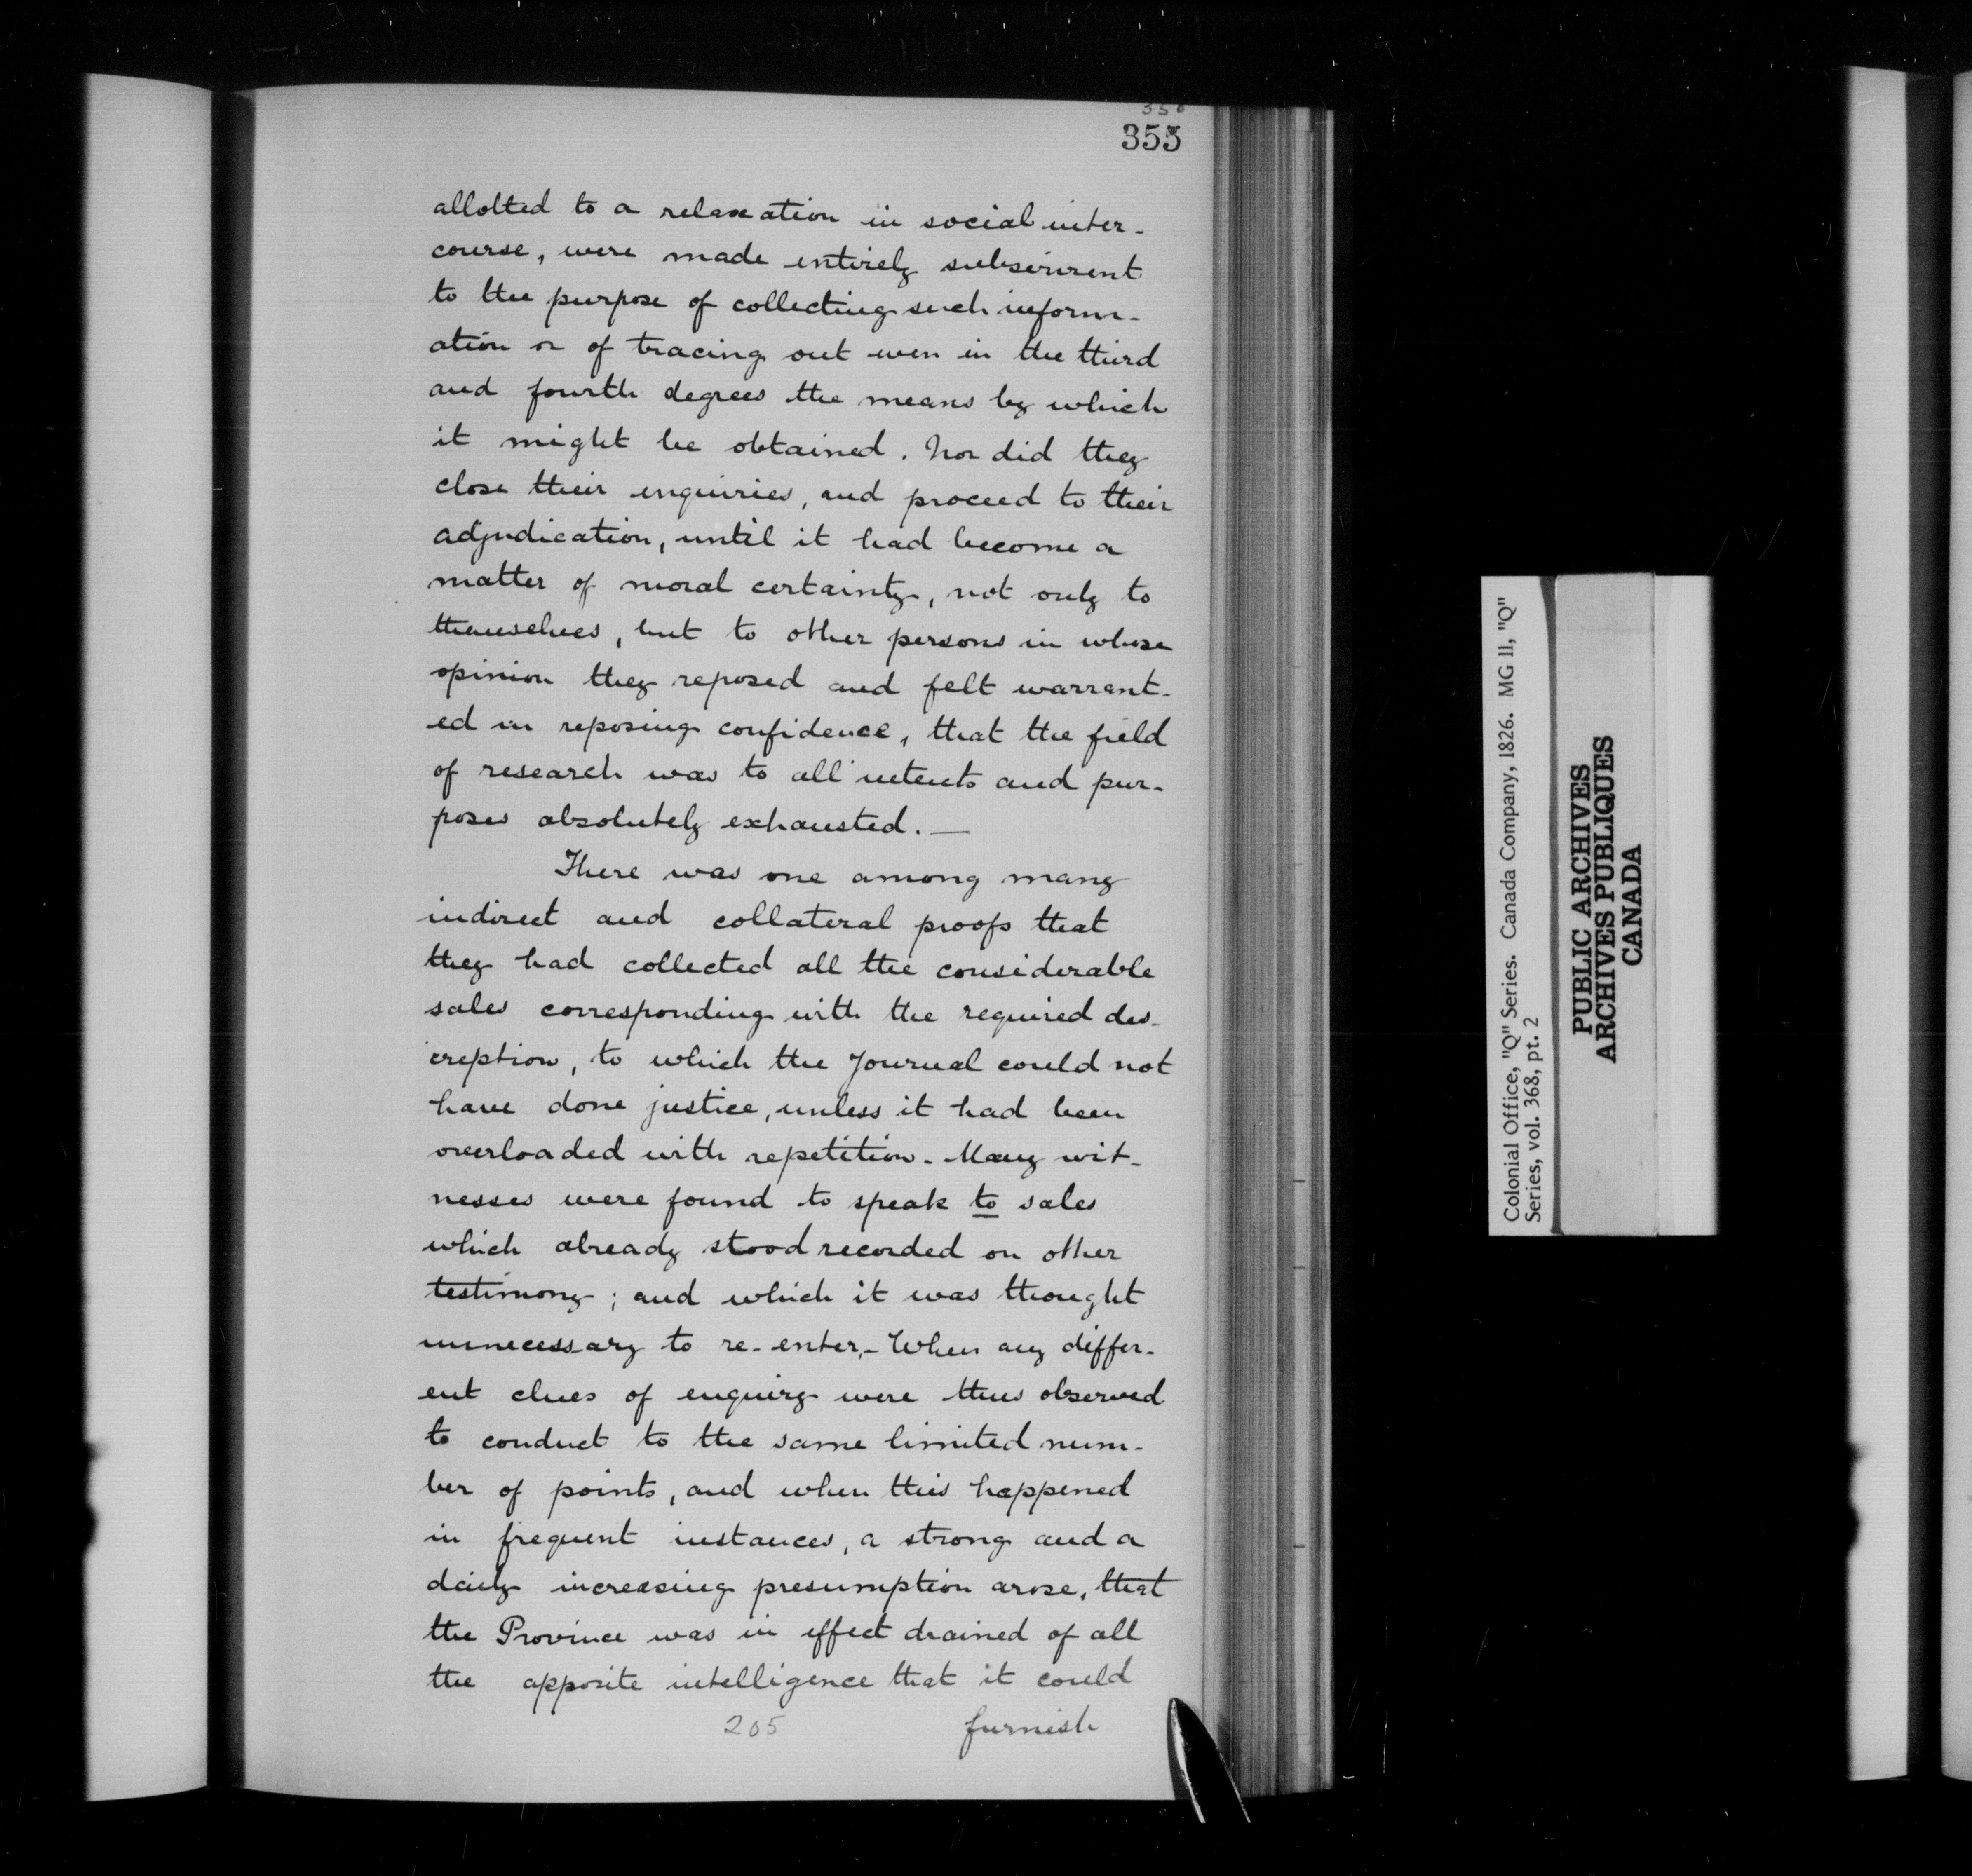 350
355
allotted to a relaxation in social inter-
course, were made entirely subservient
to the purpose of collecting such inform-
ation or of tracing out even in the third
and fourth degrees the means by which
it might be obtained. Nor did they
close their enquiries, and proceed to their
adjudication, until it had become a
matter of moral certainty, not only to
themselves, but to other persons in whose
opinion they reposed and felt warrant-
ed in reposing confidence, that the field
of research was to all intents and pur-
poses absolutely exhausted.—
There was one among many
indirect and collateral proofs that
they had collected all the considerable
sales corresponding with the required des-
cription, to which the Journal could not
have done justice, unless it had been
overloaded with repetition. Many wit-
nesses were found to speak to sales
which already stood recorded on other
testimony; and which it was thought
unnecessary to re-enter.- When any differ-
ent clues of enquiry were thus observed
to conduct to the same limited num-
ber of points, and when this happened
in frequent instances, a strong and a
daily increasing presumption arose, that
the Province was in effect drained of all
the apposite intelligence that it could
205 furnish
Colonial Office, "Q" Series. Canada Company, 1826. MG 11, "Q"
Series, vol. 368, pt. 2
PUBLIC ARCHIVES
ARCHIVES PUBLIQUES
CANADA